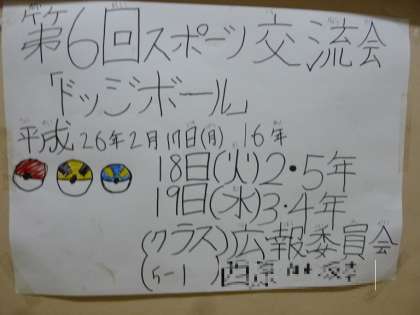 第6回スポーツ交流会
「ドッジボール」
平成26年2月17日(月) 1.6年
18日(火)2・5年
19日(水)3・4年
(クラス)広報委員会
(5-1)